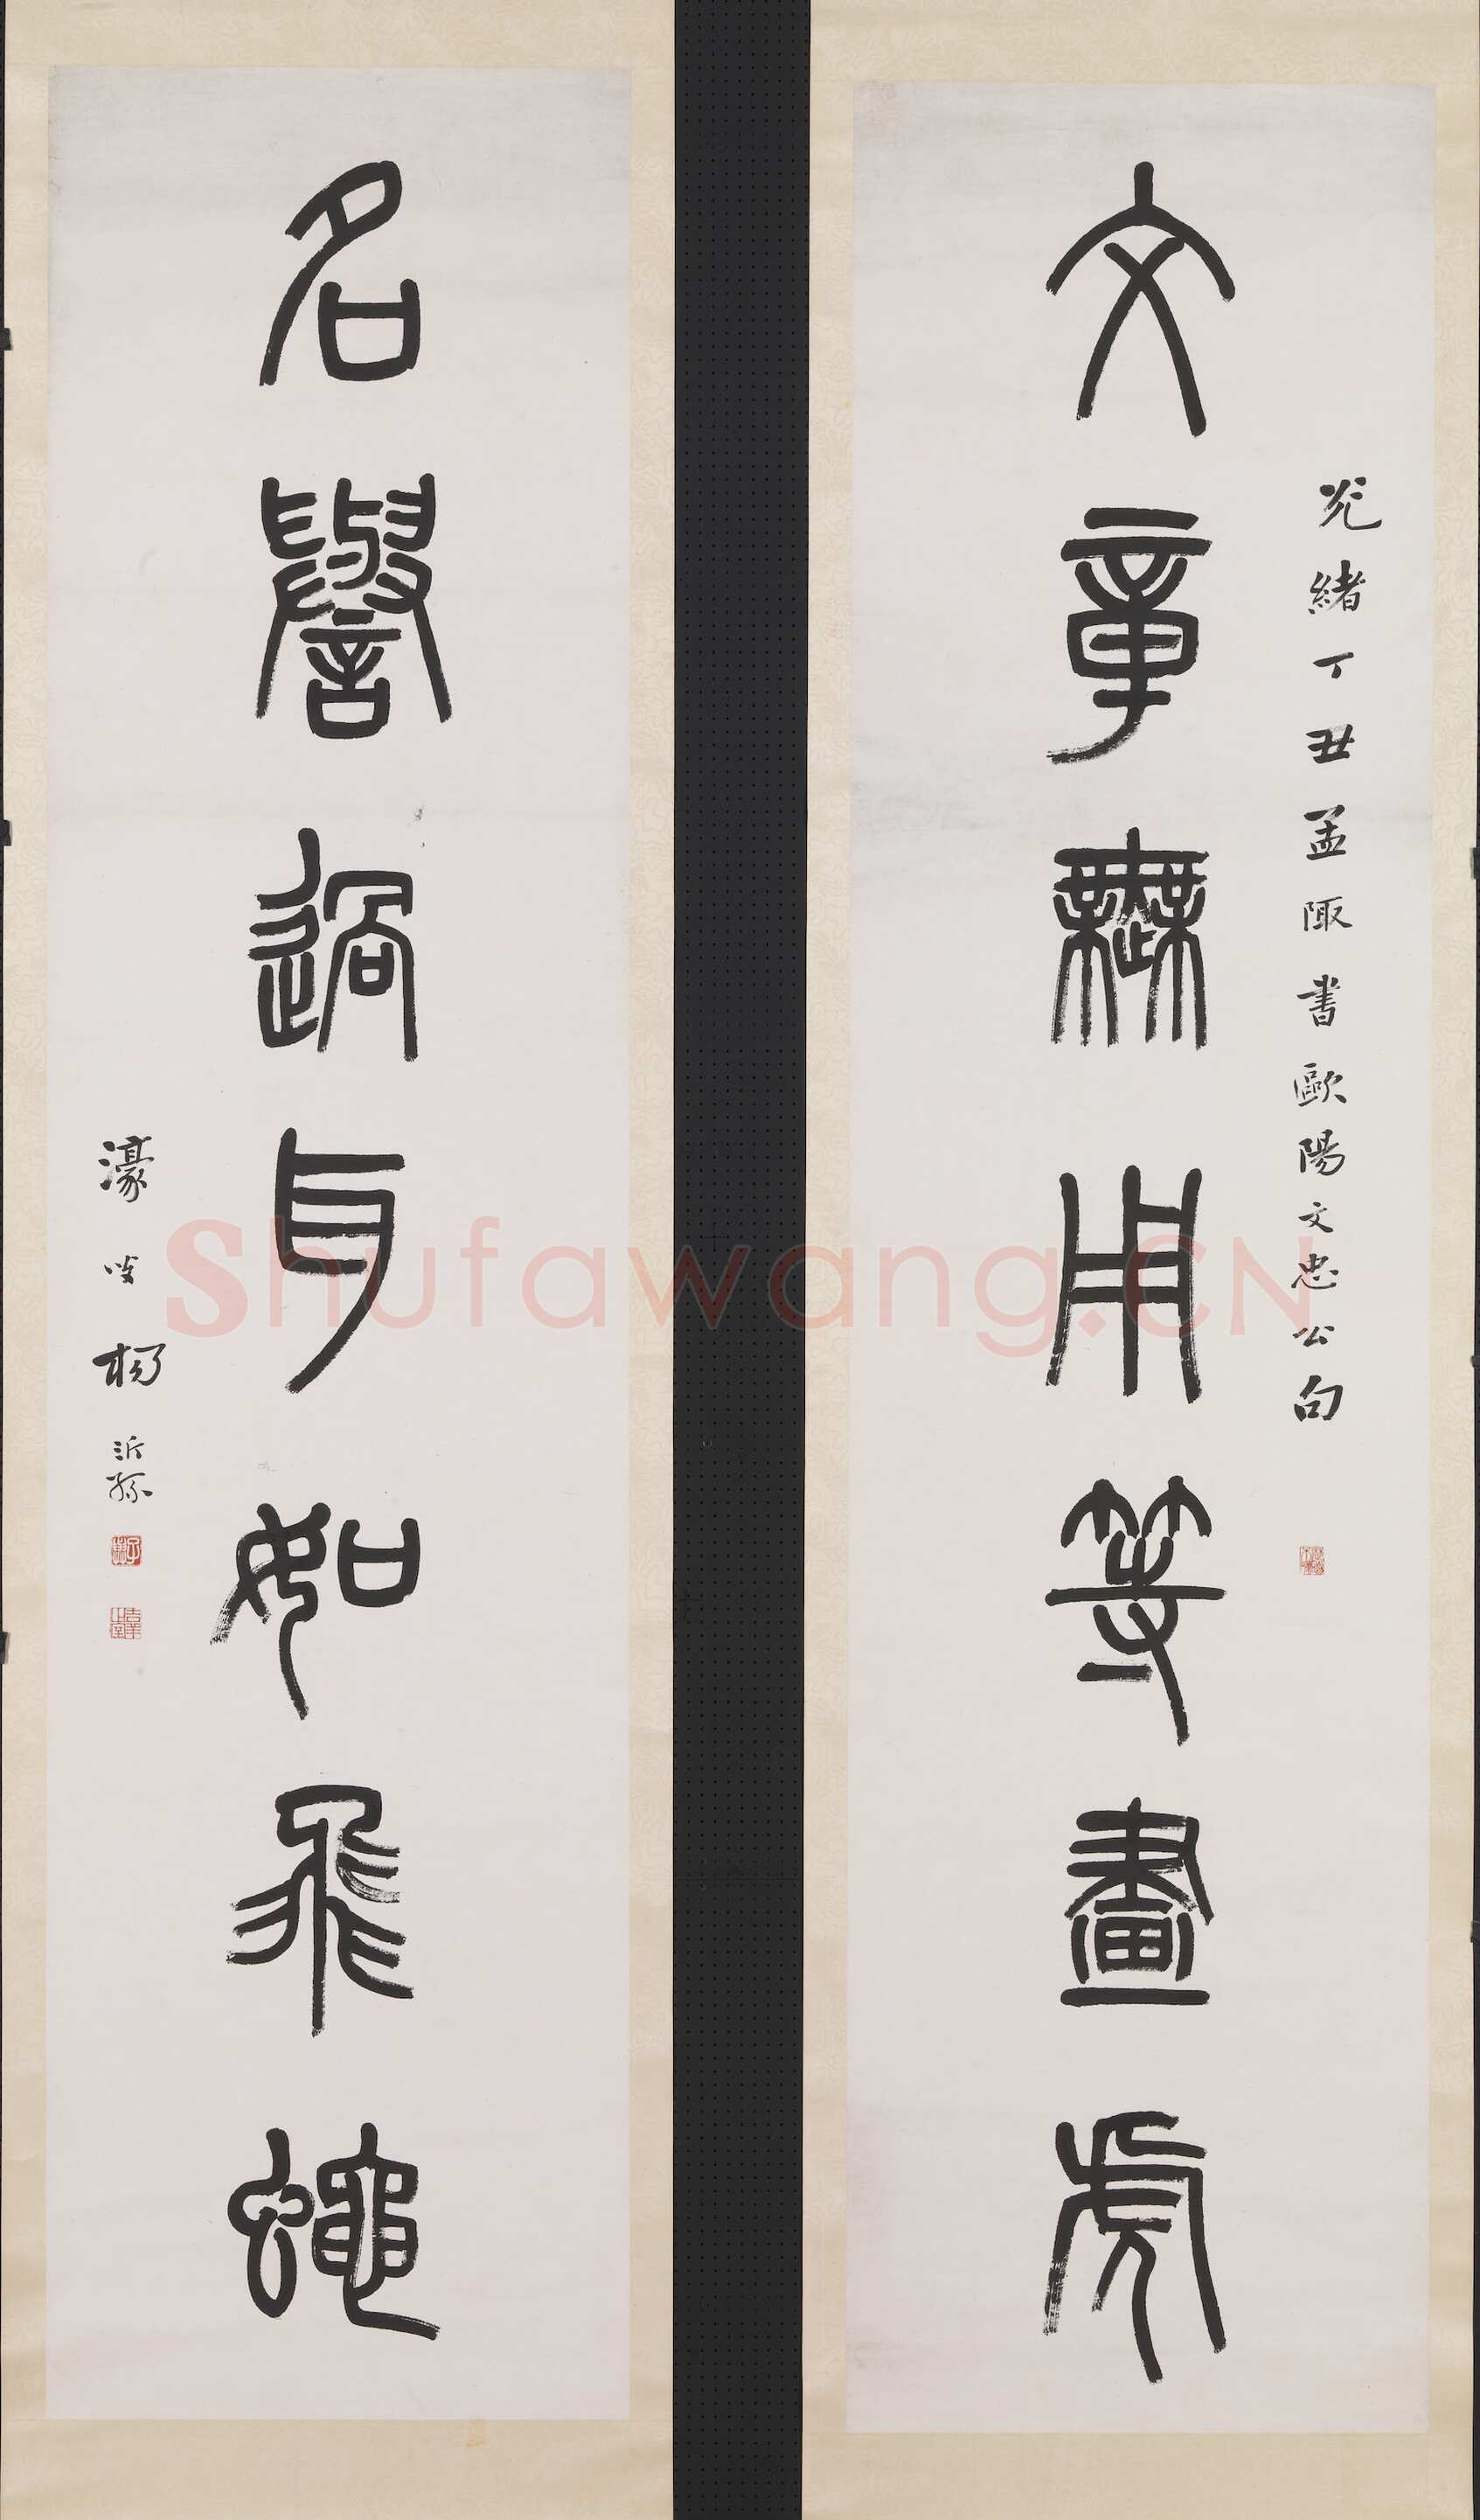 光緒丁丑孟陬書歐陽文忠公句
文章無用等畫虎
名譽過耳如飛蠅
濠叟楊沂孫
Shufawang.CN